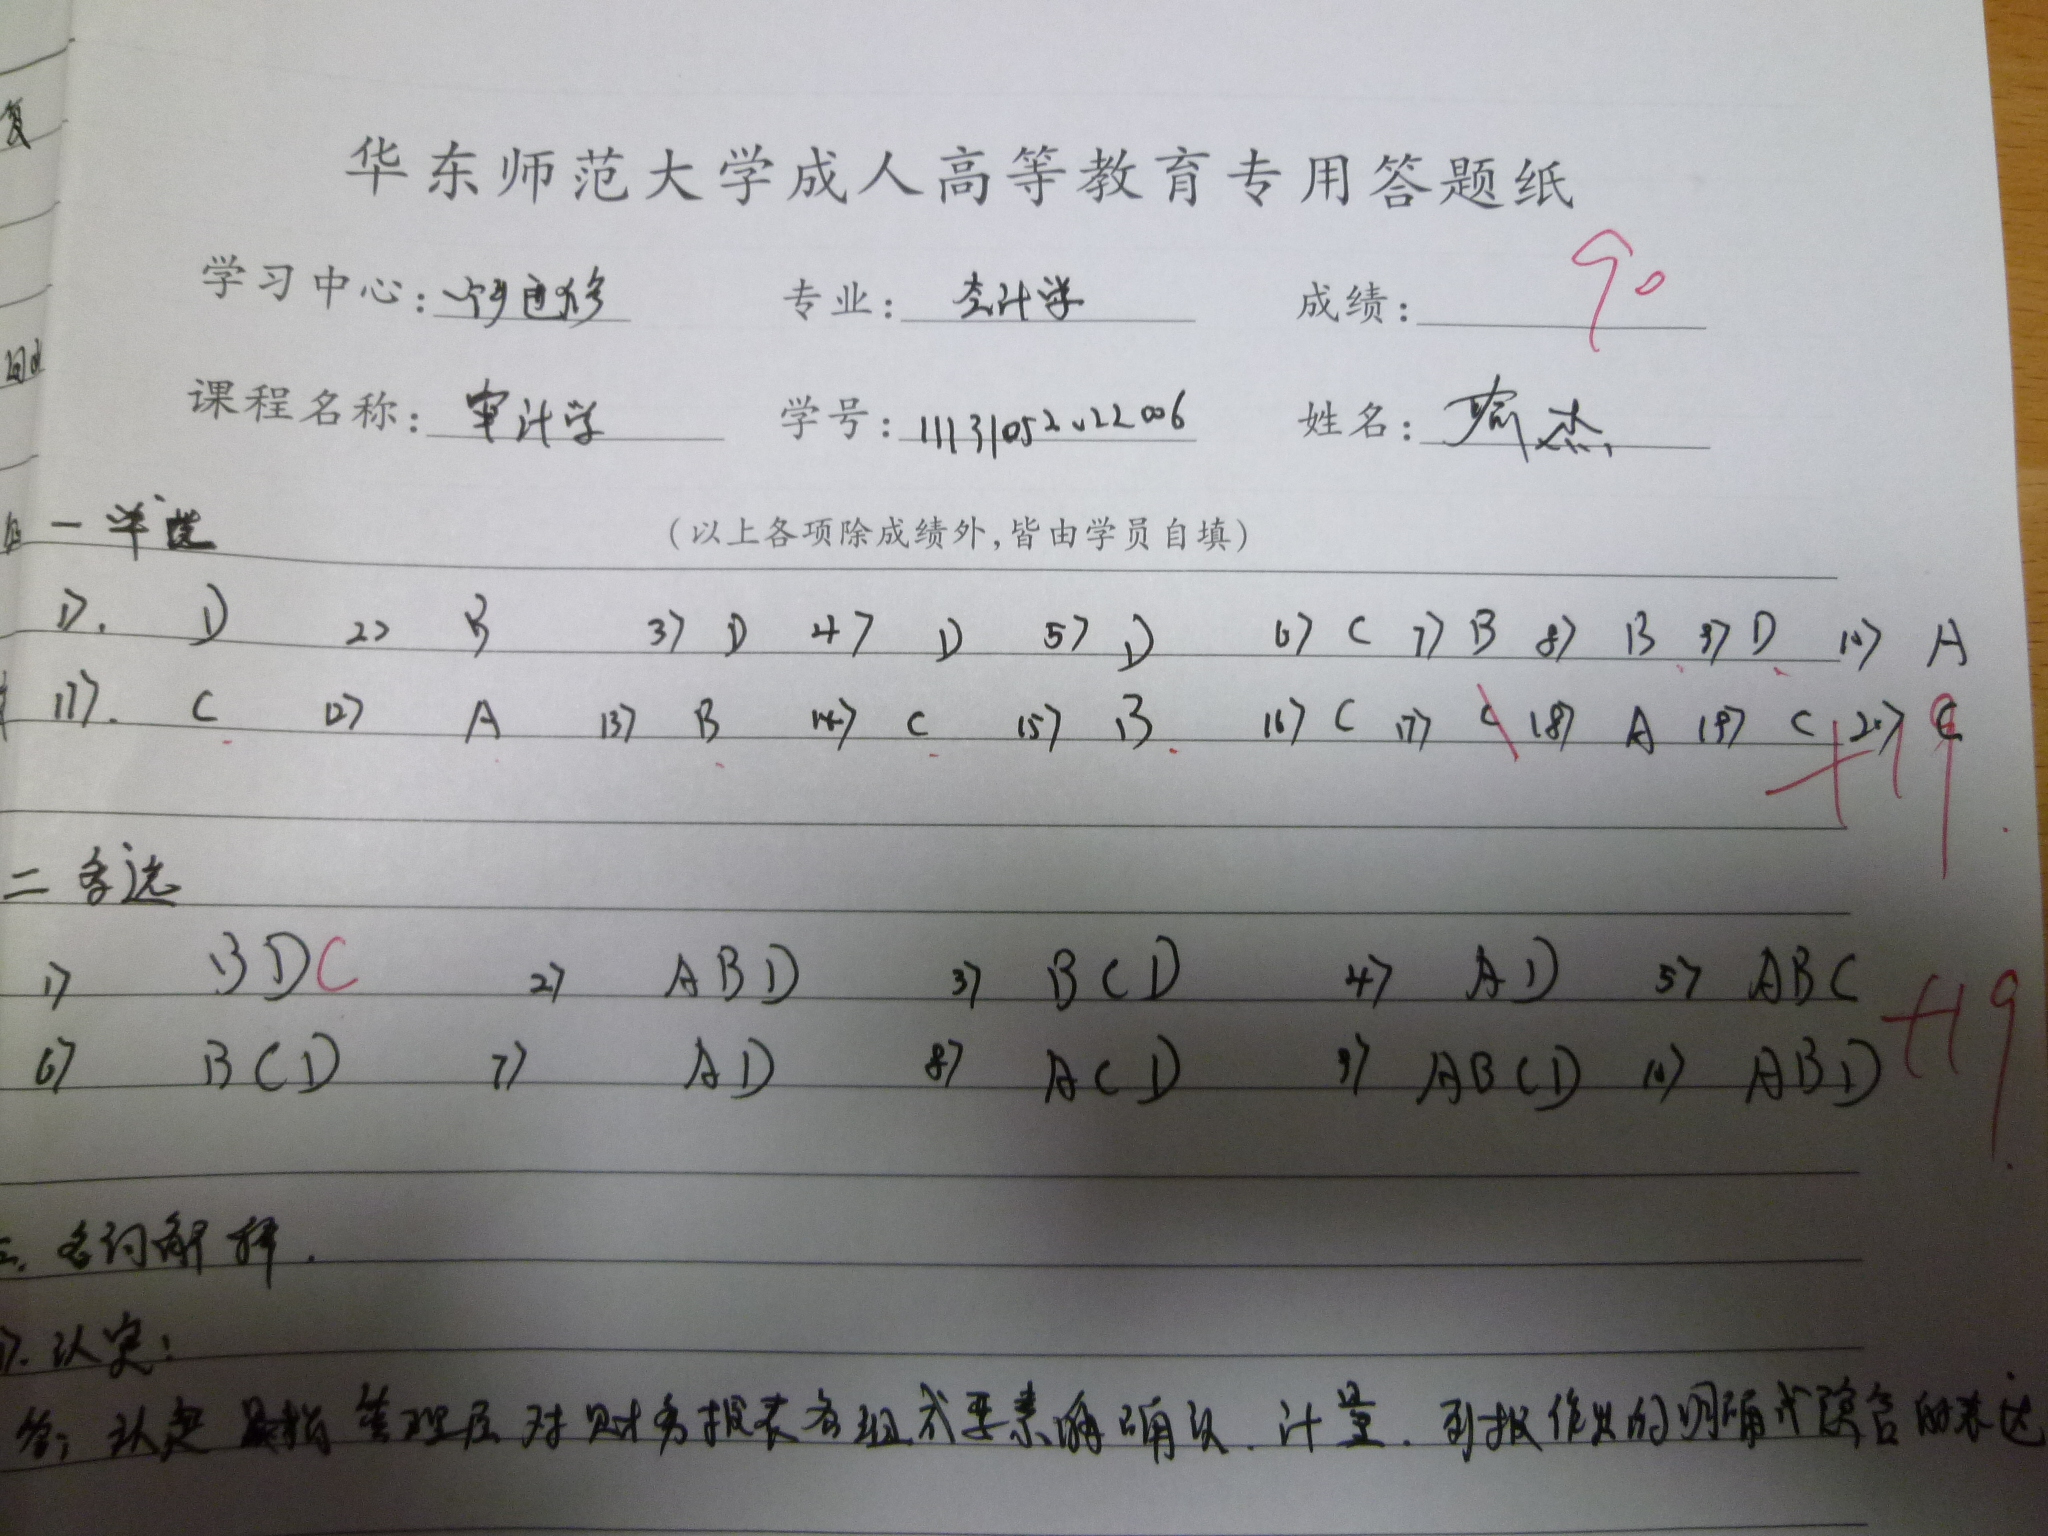 华东师范大学成人高等教育专用答题纸
学习中心: 专业: 会计学 成绩: 90
课程名称: 审计学 学号: 姓名: 杰
(以上各项除成绩外,皆由学员自填)
一 单选
1). D 2) B 3) D 4) D 5) D 6) C 7) B 8) B 9) D 10) A
11). C 12) A 13) B 14) C 15) B 16) C 17) C 18) A 19) C 20) C
+19
二 多选
1) BDC 2) ABD 3) BCD 4) AD 5) ABC
+19
6) BCD 7) AD 8) ACD 9) ABCD 10) ABD
三. 名词解释.
1). 认定:
答: 认定是指管理层对财务报表各组成要素的确认.计量.列报作出的明确或隐含的表达